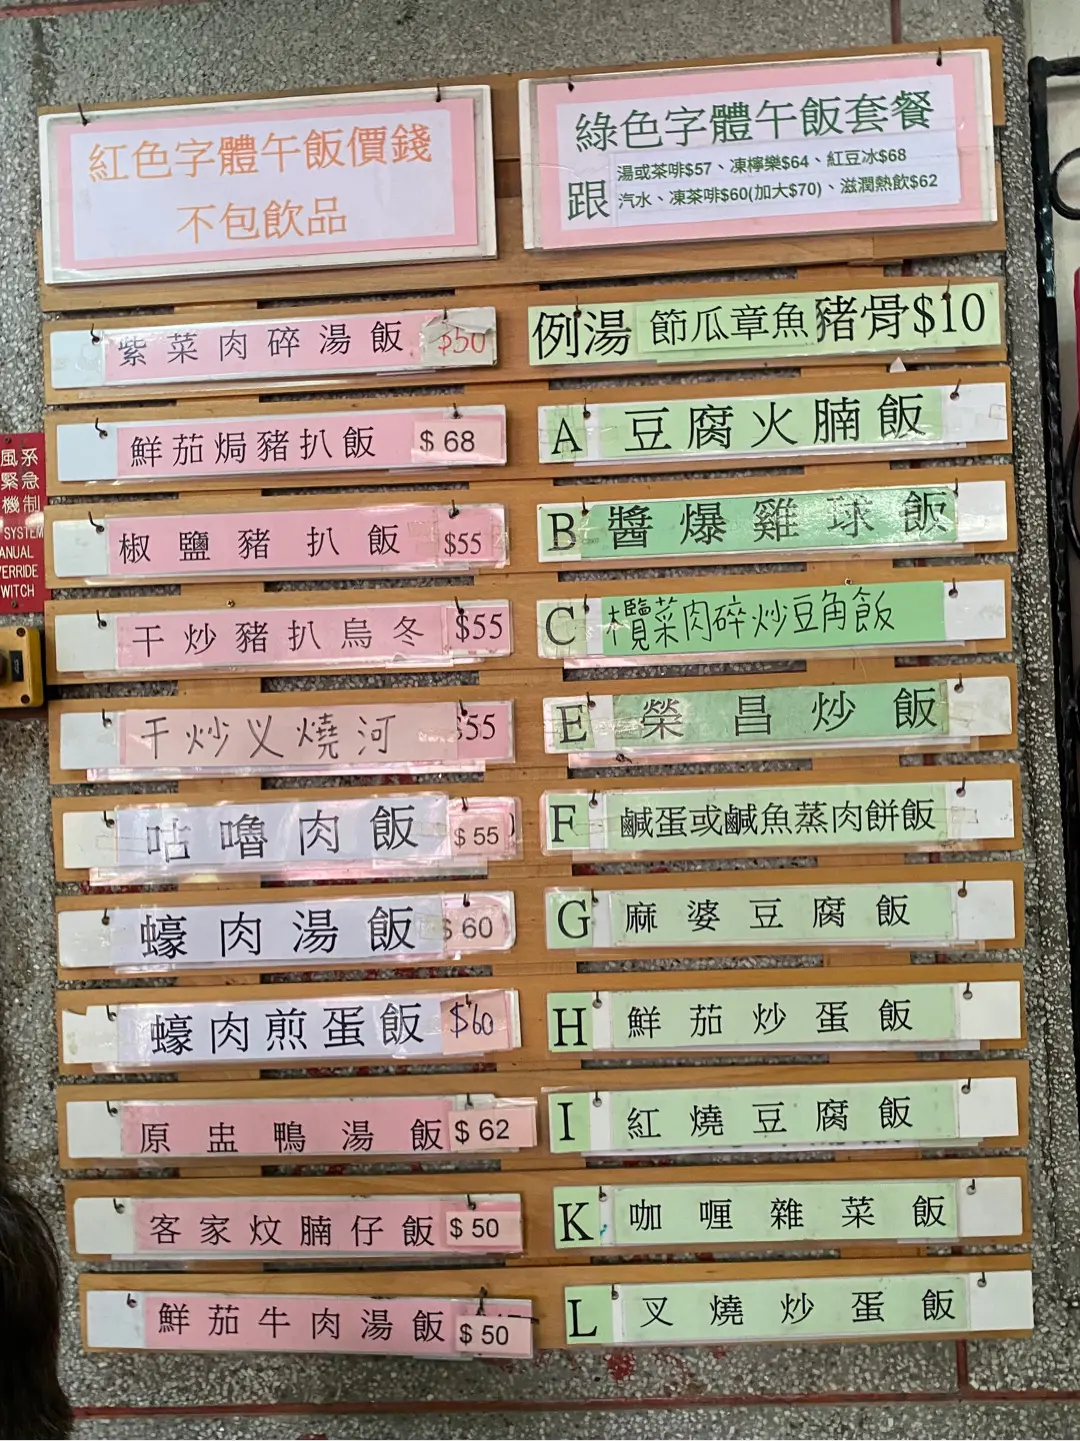 紅色字體午飯價錢
不包飲品
紫菜肉碎湯飯 $50
鮮茄焗豬扒飯 $68
椒鹽豬扒飯 $55
干炒豬扒烏冬 $55
干炒义燒河 $55
咕嚕肉飯 $55
蠔肉湯飯 $60
蠔肉煎蛋飯 $60
原盅鴨湯飯 $62
客家炆腩仔飯 $50
鮮茄牛肉湯飯 $50
綠色字體午飯套餐
跟 湯或茶啡$57、凍檸樂$64、紅豆冰$68
汽水、凍茶啡$60(加大$70)、滋潤熱飲$62
例湯 節瓜章魚豬骨$10
A 豆腐火腩飯
B 醬爆雞球飯
C 欖菜肉碎炒豆角飯
E 榮昌炒飯
F 鹹蛋或鹹魚蒸肉餅飯
G 麻婆豆腐飯
H 鮮茄炒蛋飯
I 紅燒豆腐飯
K 咖喱雜菜飯
L 叉燒炒蛋飯
風系
緊急
機制
SYSTEM
ANUAL
ERRIDE
WITCH